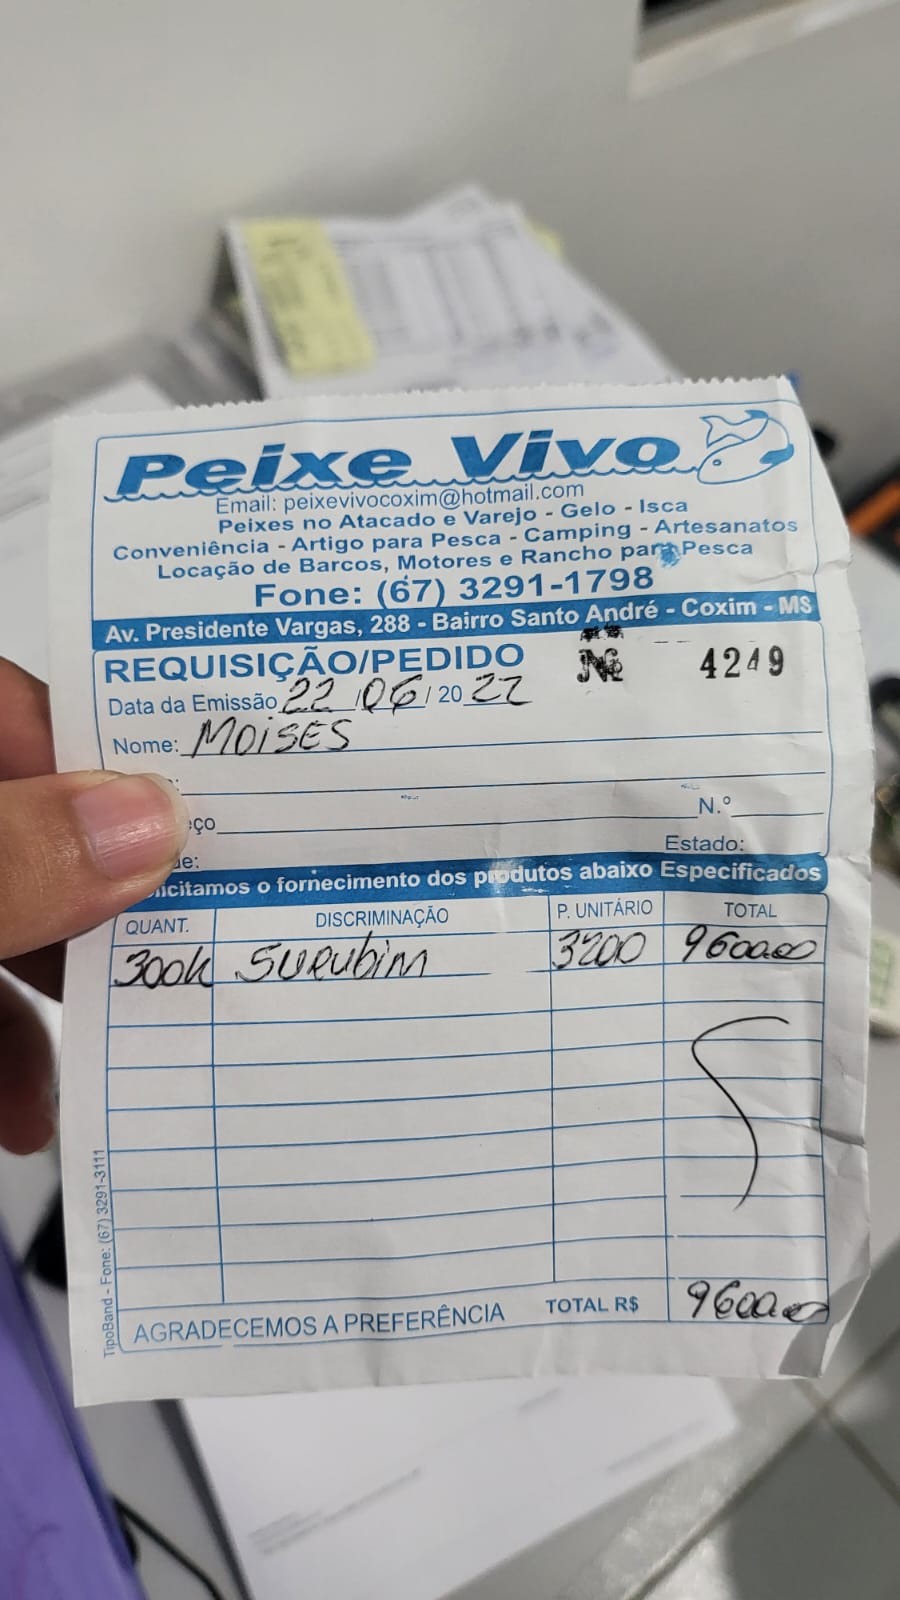 Peixe Vivo
Email: peixevivocoxim@hotmail.com
Peixes no Atacado e Varejo - Gelo - Isca
Conveniência - Artigo para Pesca - Camping - Artesanatos
Locação de Barcos, Motores e Rancho para Pesca
Fone: (67) 3291-1798
Av. Presidente Vargas, 288 - Bairro Santo André - Coxim - MS
REQUISIÇÃO/PEDIDO Nº 4249
Data da Emissão 22/06/2022
Nome: MOISES
eço N.º
de: Estado:
licitamos o fornecimento dos produtos abaixo Especificados
QUANT. DISCRIMINAÇÃO P. UNITÁRIO TOTAL
300k Surubim 3200 9600.00
AGRADECEMOS A PREFERÊNCIA TOTAL R$ 9600.00
TipoBand - Fone: (67) 3291-3111